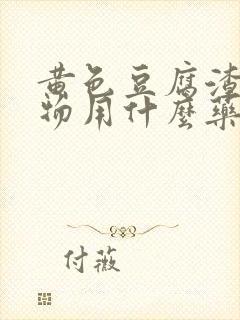 黄色豆腐渣
物用什麼藥
付薇